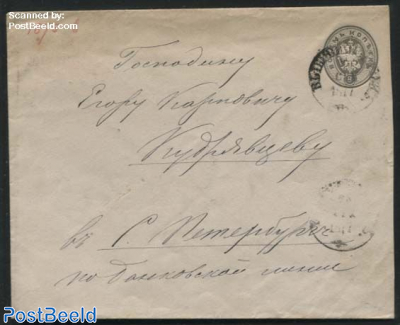 Scanned by:
PostBeeld.com
Господину
Егору Карповичу
Кудрявцеву
въ С. Петербургѣ
по банковской линіи
1877
PostBeeld